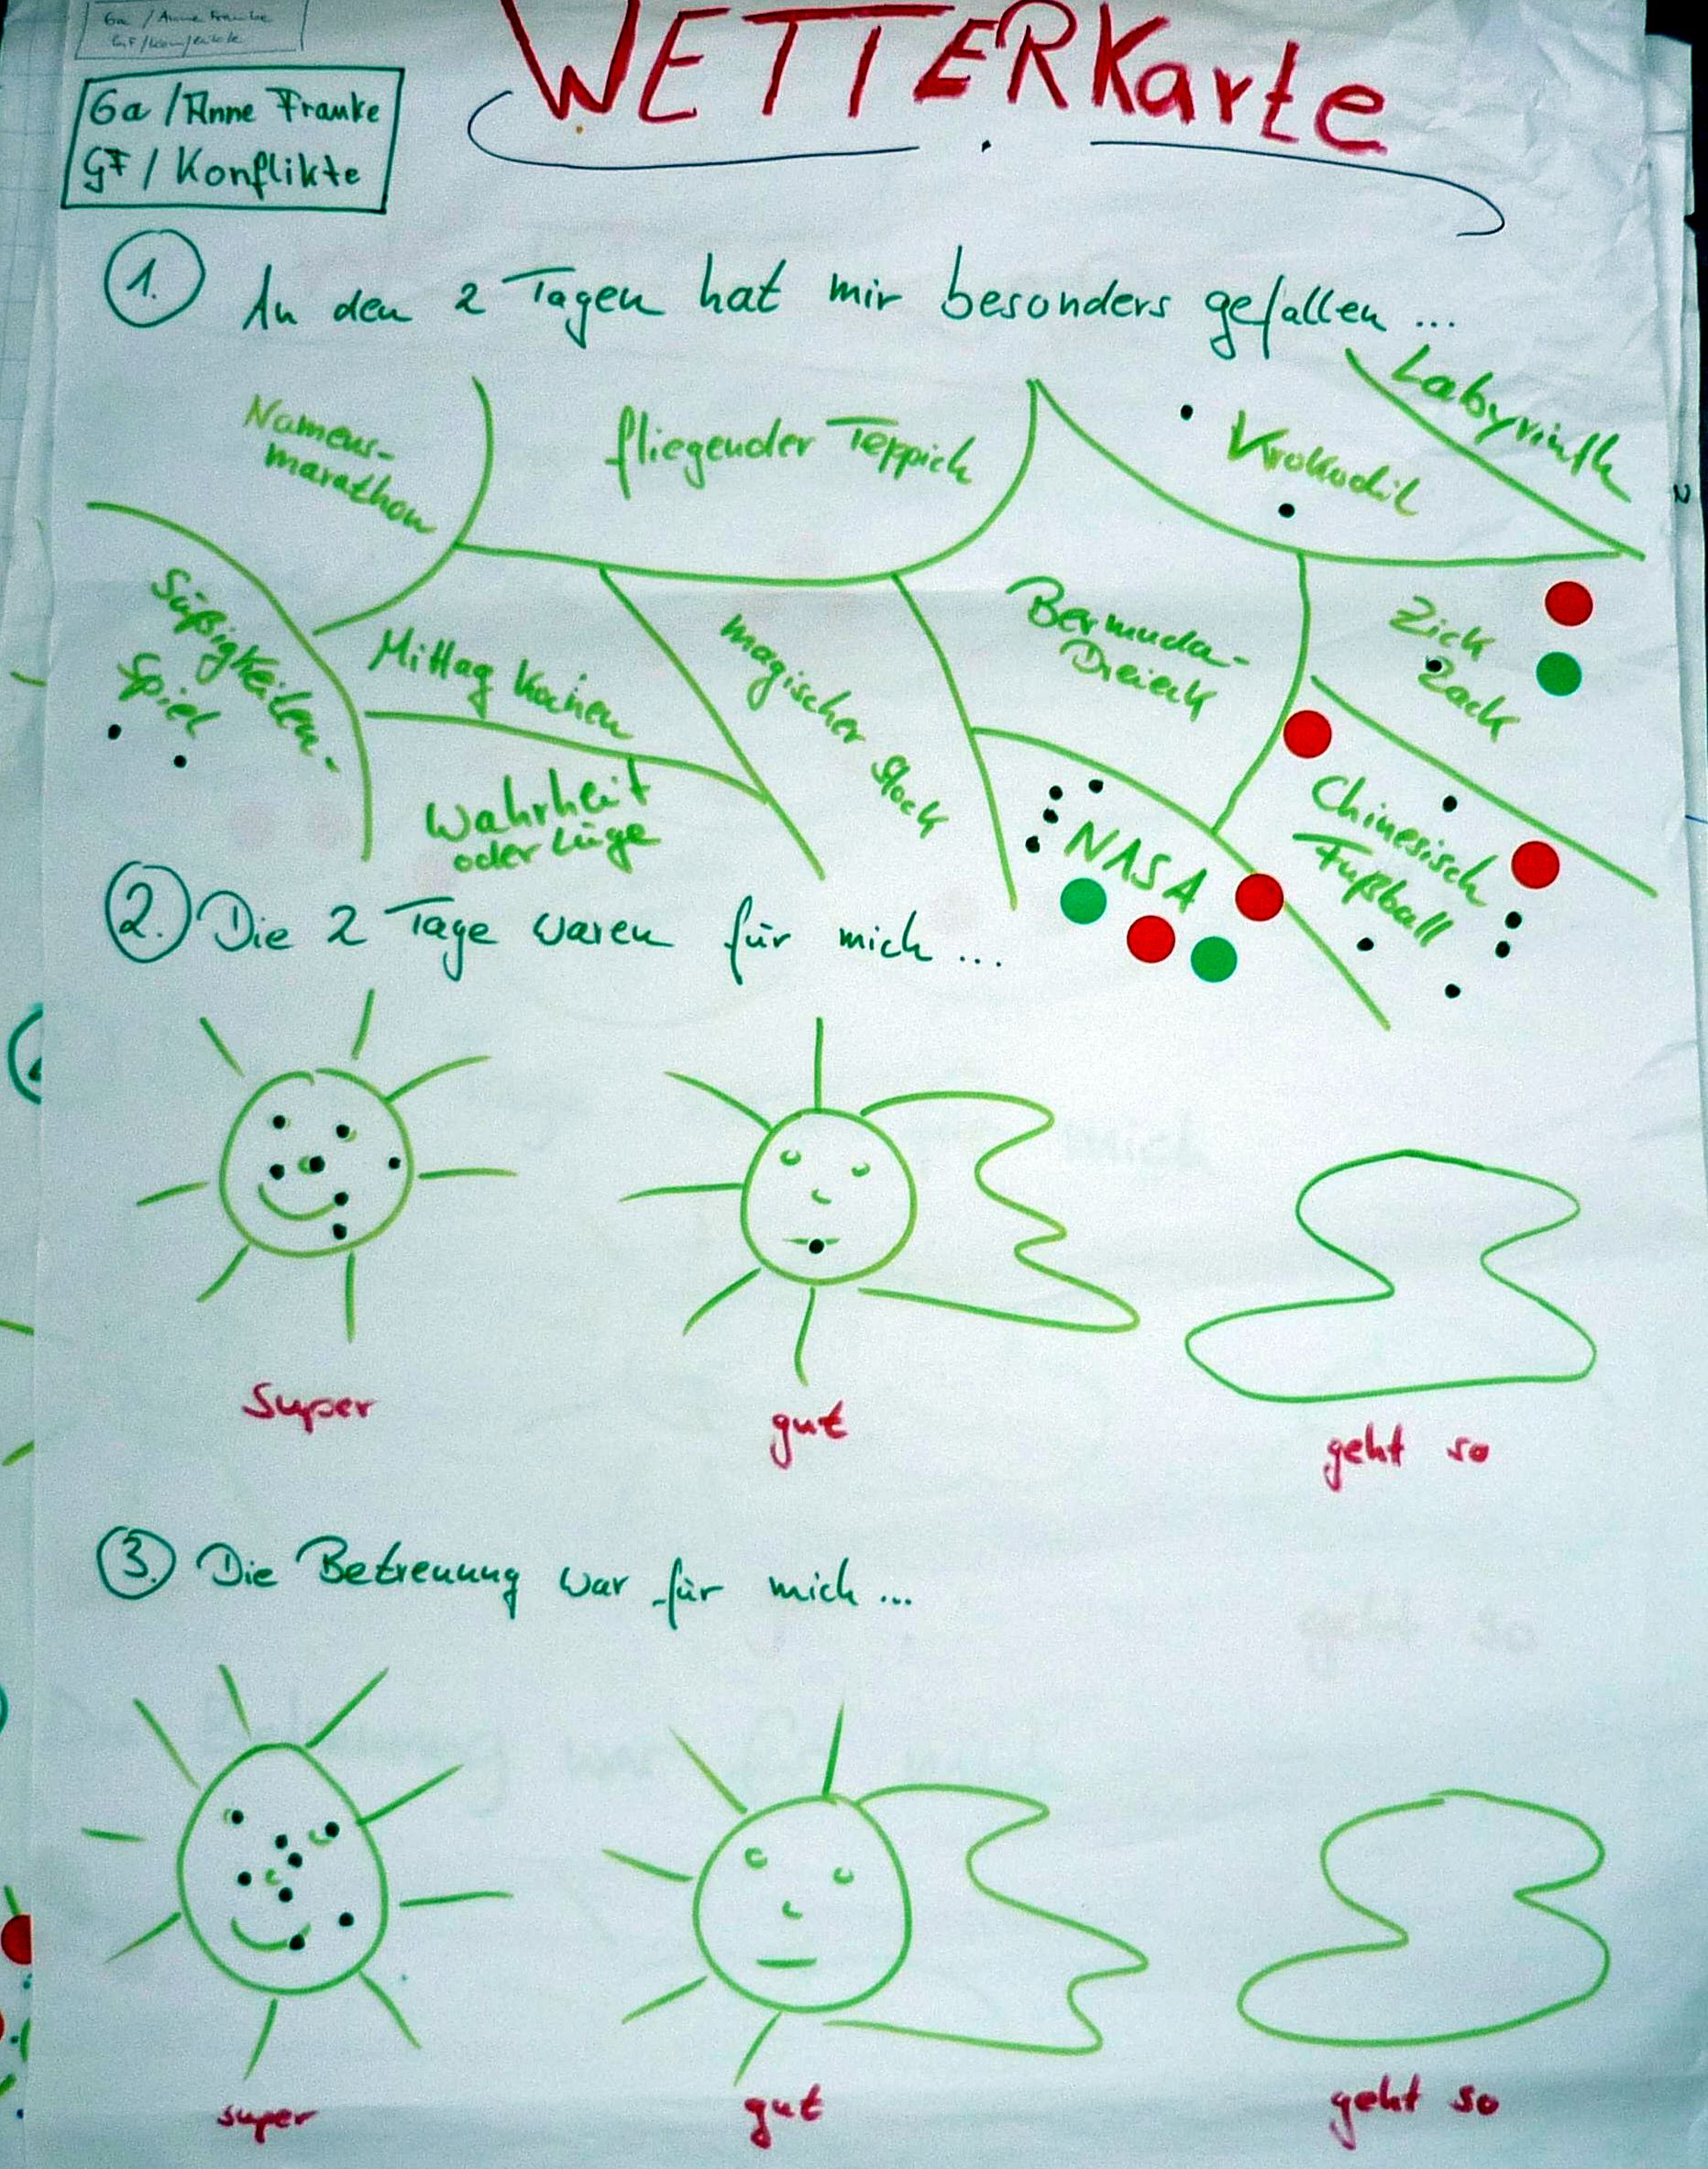 6a / Anne Franke
GF / Konflikte
WETTERKarte
6a / Anne Franke
GF / Konflikte
1. An den 2 Tagen hat mir besonders gefallen ...
Namens-
marathon
fliegender Teppich
Krokodil
Labyrinth
Süßigkeiten-
Spiel
Mittag kochen
Wahrheit
oder Lüge
magischer Stock
Bermuda-
Dreieck
Zick
Zack
NASA
Chinesisch
Fußball
2. Die 2 Tage waren für mich ...
Super
gut
geht so
3. Die Betreuung war für mich ...
super
gut
geht so